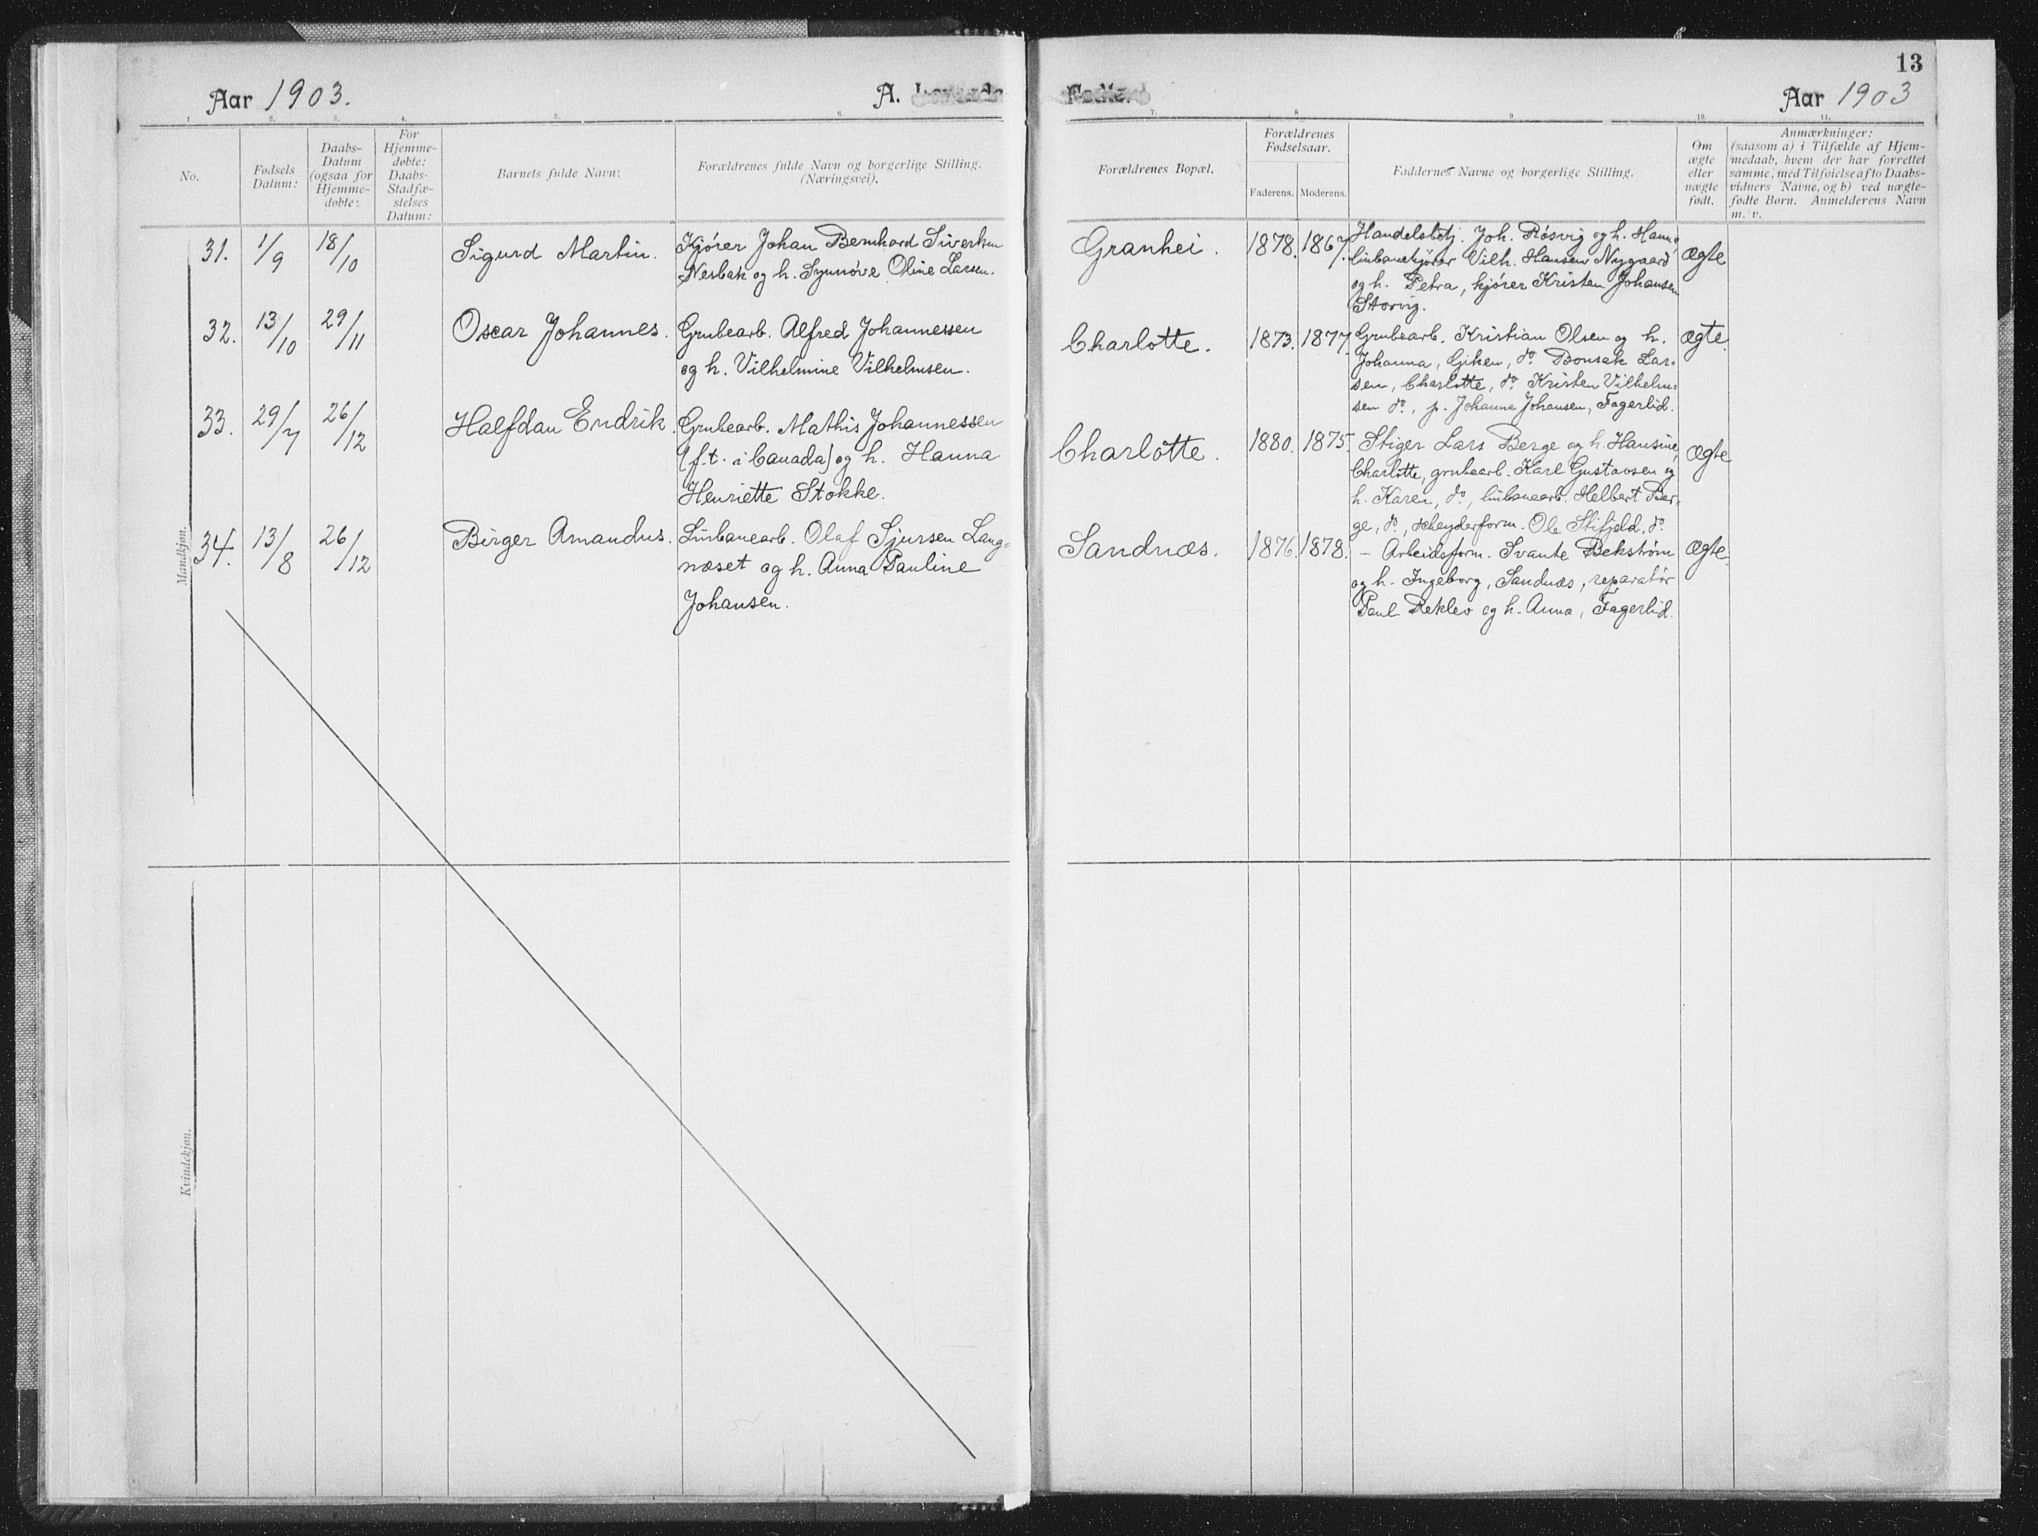 Aar 1903.
A. Levende
1. 2. 3. 4. 5. 6.
No.
Fødsels Datum:
Daabs-Datum (ogsaa for Hjemme-døbte:
For Hjemme-døbte: Daabs-Stadfæ-stelses Datum:
Barnets fulde Navn:
Forældrenes fulde Navn og borgerlige Stilling. (Næringsvei).
Mandkjøn.
31. 1/9 18/10 Sigurd Martin. Kjører Johan Bernhard Sivertsen
Nesbak og h. Synnøve Oline Larsen.
32. 13/10 29/11 Oscar Johannes. Grubearb. Alfred Johannessen
og h. Vilhelmine Vilhelmsen.
33. 29/7 26/12 Halfdan Endrik. Grubearb. Mathis Johannessen
(f.t. i Canada) og h. Hanna
Henriette Stokke.
34. 13/8 26/12 Birger Amandus. Linbanearb. Olaf Sjursen Lang-
næset og h. Anna Pauline
Johansen.
Kvindekjøn.
13
Fødte.
Aar 1903
7. 8. 9. 10. 11.
Forældrenes Bopæl.
Forældrenes Fødselsaar.
Faderens. Moderens.
Faddernes Navne og borgerlige Stilling.
Om ægte eller uægte født.
Anmærkninger:
(saasom a) i Tilfælde af Hjem-
medaab, hvem der har forrettet
samme, med Tilføielse af to Daabs-
vidners Navne, og b) ved uægte-
fødte Børn. Anmelderens Navn
m. v.
Granhei. 1878. 1867. Handelsbetj. Joh. Røsvig og h. Hanna
linbanekjører Vilh. Hansen Nygaard
og h. Petra, kjører Kristen Johansen
Storvig.
Ægte
Charlotte. 1873. 1877. Grubearb. Kristian Olsen og h.
Johanna, Giken, do Bonsak Lar-
sen, Charlotte, do Kristen Vilhelm-
sen do, p. Johanne Johansen, Fagerlid.
Ægte.
Charlotte. 1880. 1875. Stiger Lars Berge og h. Hansine,
Charlotte, grubearb. Karl Gustavsen og
h. Karen, do, linbanearb. Helbert Ber-
ge, do, scheyderform. Ole Stifjeld, do
Ægte
Sandnæs. 1876. 1878. – Arbeidsform. Svante Bekstrøm
og h. Ingeborg, Sandnæs, reparatør
Paul Reklev og h. Anna, Fagerlid.
Ægte.